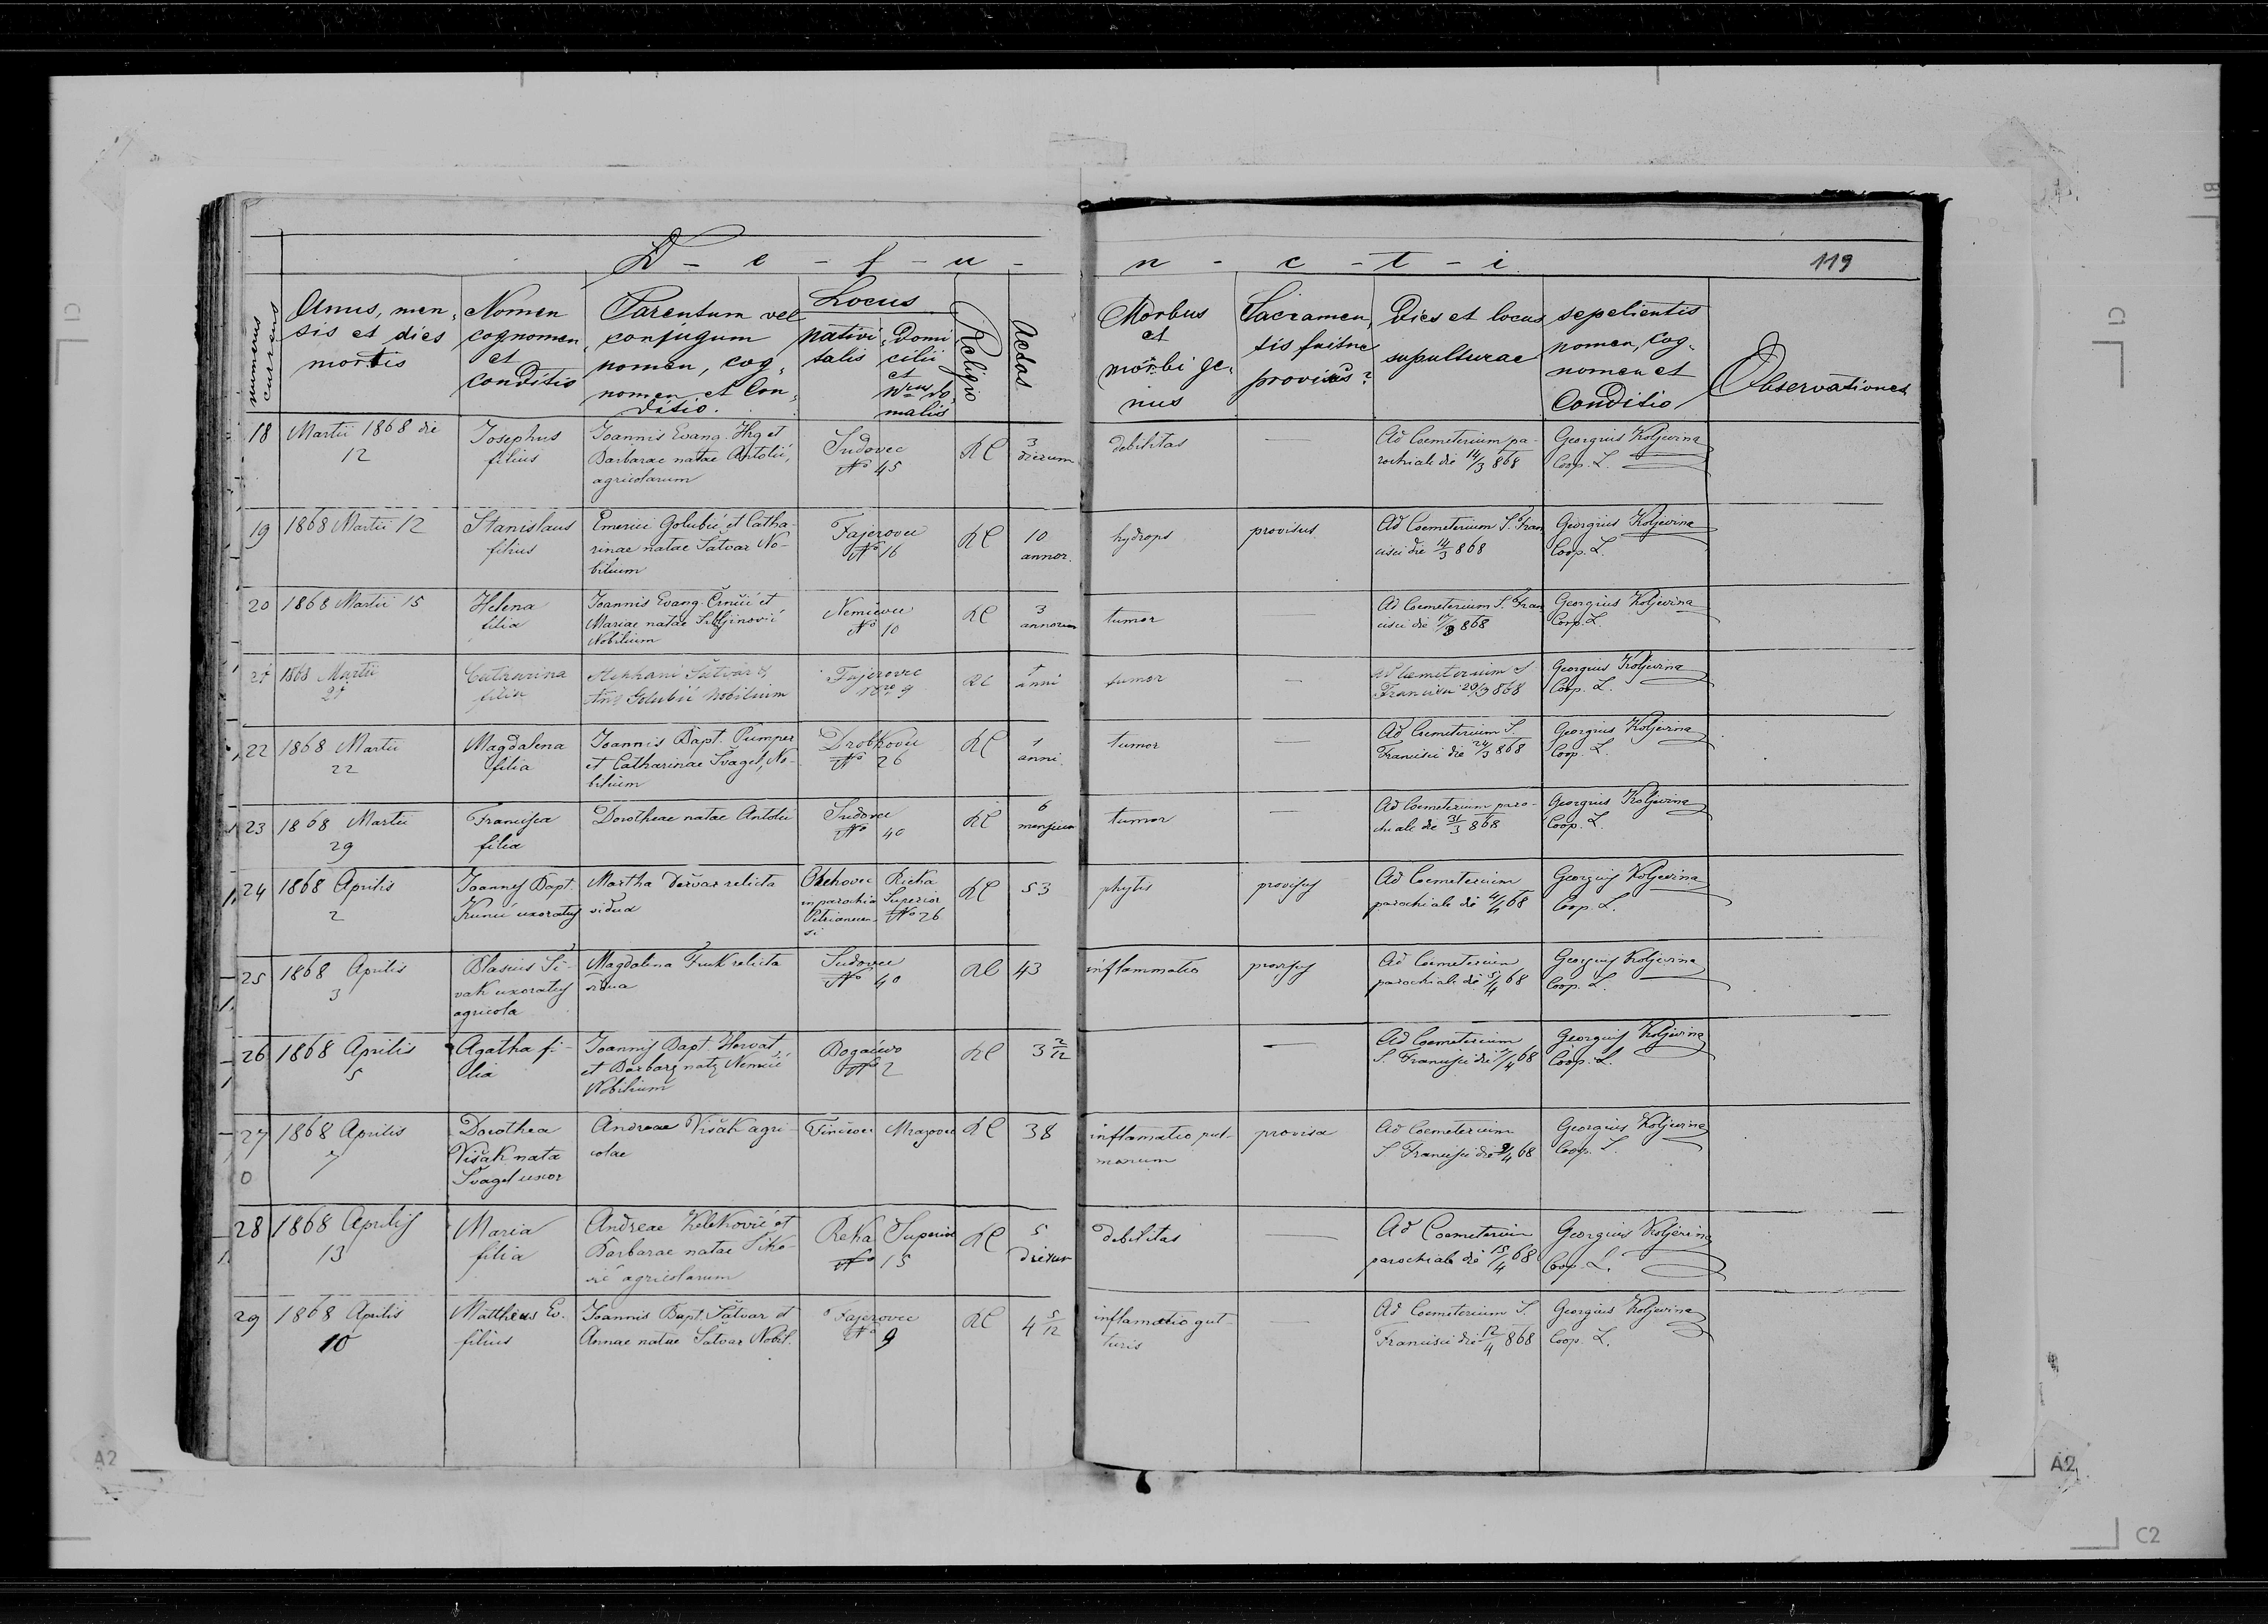 D - e - f - u -
n - c - t - i
119
numerus currens
Annus, men-
sis et dies
mortis
Nomen
cognomen
et
Conditio
Parentum vel
conjugum
nomen, cog-
nomen et Con-
ditio.
Locus
nativi-
talis
Domi
cilii
et
Nrus do-
malis
Religio
Aetas
Morbus
et
morbi ge-
nus
Sacramen-
tis fuitne
provisus?
Dies et locus
supulturae
sepelientis
nomen, cog-
nomen et
Conditio
Observationes
18
Martii 1868 die
12
Josephus
filius
Joannis Evang. Hrg et
Barbarae natae Antolić,
agricolarum
Sudovec
No 45
RC
3
dierum
debilitas
—
Ad Coemeterium pa-
rochiale die 14/3 868
Georgius Koljevina
Coop. L.
19
1868 Martii 12
Stanislaus
filius
Emerici Golubić et Catha-
rinae natae Šatvar No-
bilium
Fajerovec
No 16
RC
10
annor.
hydrops
provisus
Ad Coemeterium S. Fran
cisci die 14/3 868
Georgius Koljevina
Coop. L.
20
1868 Martii 15
Helena
filia
Joannis Evang. Črnčić et
Mariae natae
Nobilium
No 10
RC
3
annorum
tumor
Ad Coemeterium S. Fran
cisci die 17/3 868
Georgius Koljevina
Coop. L.
21
1868 Martii
21
Catharina
filia
Stephani Šatvar &
Golubić Nobilium
Fajerovec
Nro 9
RC
1
anni
tumor
—
Ad Coemeterium S
Francisci 868
Georgius Koljevina
Coop. L.
22
1868 Martii
22
Magdalena
filia
Joannis Bapt. Pumper
et Catharinae Švagel, No-
bilium
Drobkovec
No 26
RC
1
anni
tumor
—
Ad Coemeterium S.
Francisci die 24/3 868
Georgius Koljevina
Coop. L.
23
1868 Martii
29
Francisca
filia
Dorotheae natae Antolić
Sudovec
No 40
RC
6
mensium
tumor
—
Ad Coemeterium paro-
chiale die 31/3 868
Georgius Koljevina
Coop. L.
24
1868 Aprilis
2
Joannes Bapt.
Kunić uxoratus
Martha relicta
vidua
in parochia
Rieka
Superior
No 26
RC
53
phytis
provisus
Ad Coemeterium
parochiale die 4/4 68
Georgius Koljevina
Coop. L.
25
1868 Aprilis
3
Blasius Si-
vak uxoratus
agricola
Magdalena Fruk relicta
vidua
Sudovec
No 40
RC
43
inflammatio
provisus
Ad Coemeterium
parochiale die 5/4 68
Georgius Koljevina
Coop. L.
26
1868 Aprilis
5
Agatha fi-
lia
Joannis Bapt. Horvat
et Barbarę natę Nemčić
Nobilium
Bogačevo
No 2
RC
3 2/12
—
Ad Coemeterium
S. Francisci die 7/4 68
Georgius Koljevina
Coop. L.
27
1868 Aprilis
7
Dorothea
Višak nata
Švagel uxor
Andreae Višak agri-
colae
Finčevec
Mrazovec
RC
38
inflamatio pul-
monum
provisa
Ad Coemeterium
S Francisci die 9/4 68
Georgius Koljevina
Coop. L.
28
1868 Aprilis
13
Maria
filia
Andreae Keleković et
Barbarae natae Siko-
vić agricolarum
Reka Superior
No 15
RC
5
dierum
debilitas
—
Ad Coemeterium
parochiale die 15/4 68
Georgius Koljevina
Coop. L.
29
1868 Aprilis
10
Matthaeus Ev.
filius
Joannis Bapt. Šatvar et
Annae natae Šatvar Nobil.
Fajerovec
No 9
RC
4 5/12
inflamatio gut-
turis
—
Ad Coemeterium S.
Francisci die 12/4 868
Georgius Koljevina
Coop. L.
A2
A2
C1
C1
C2